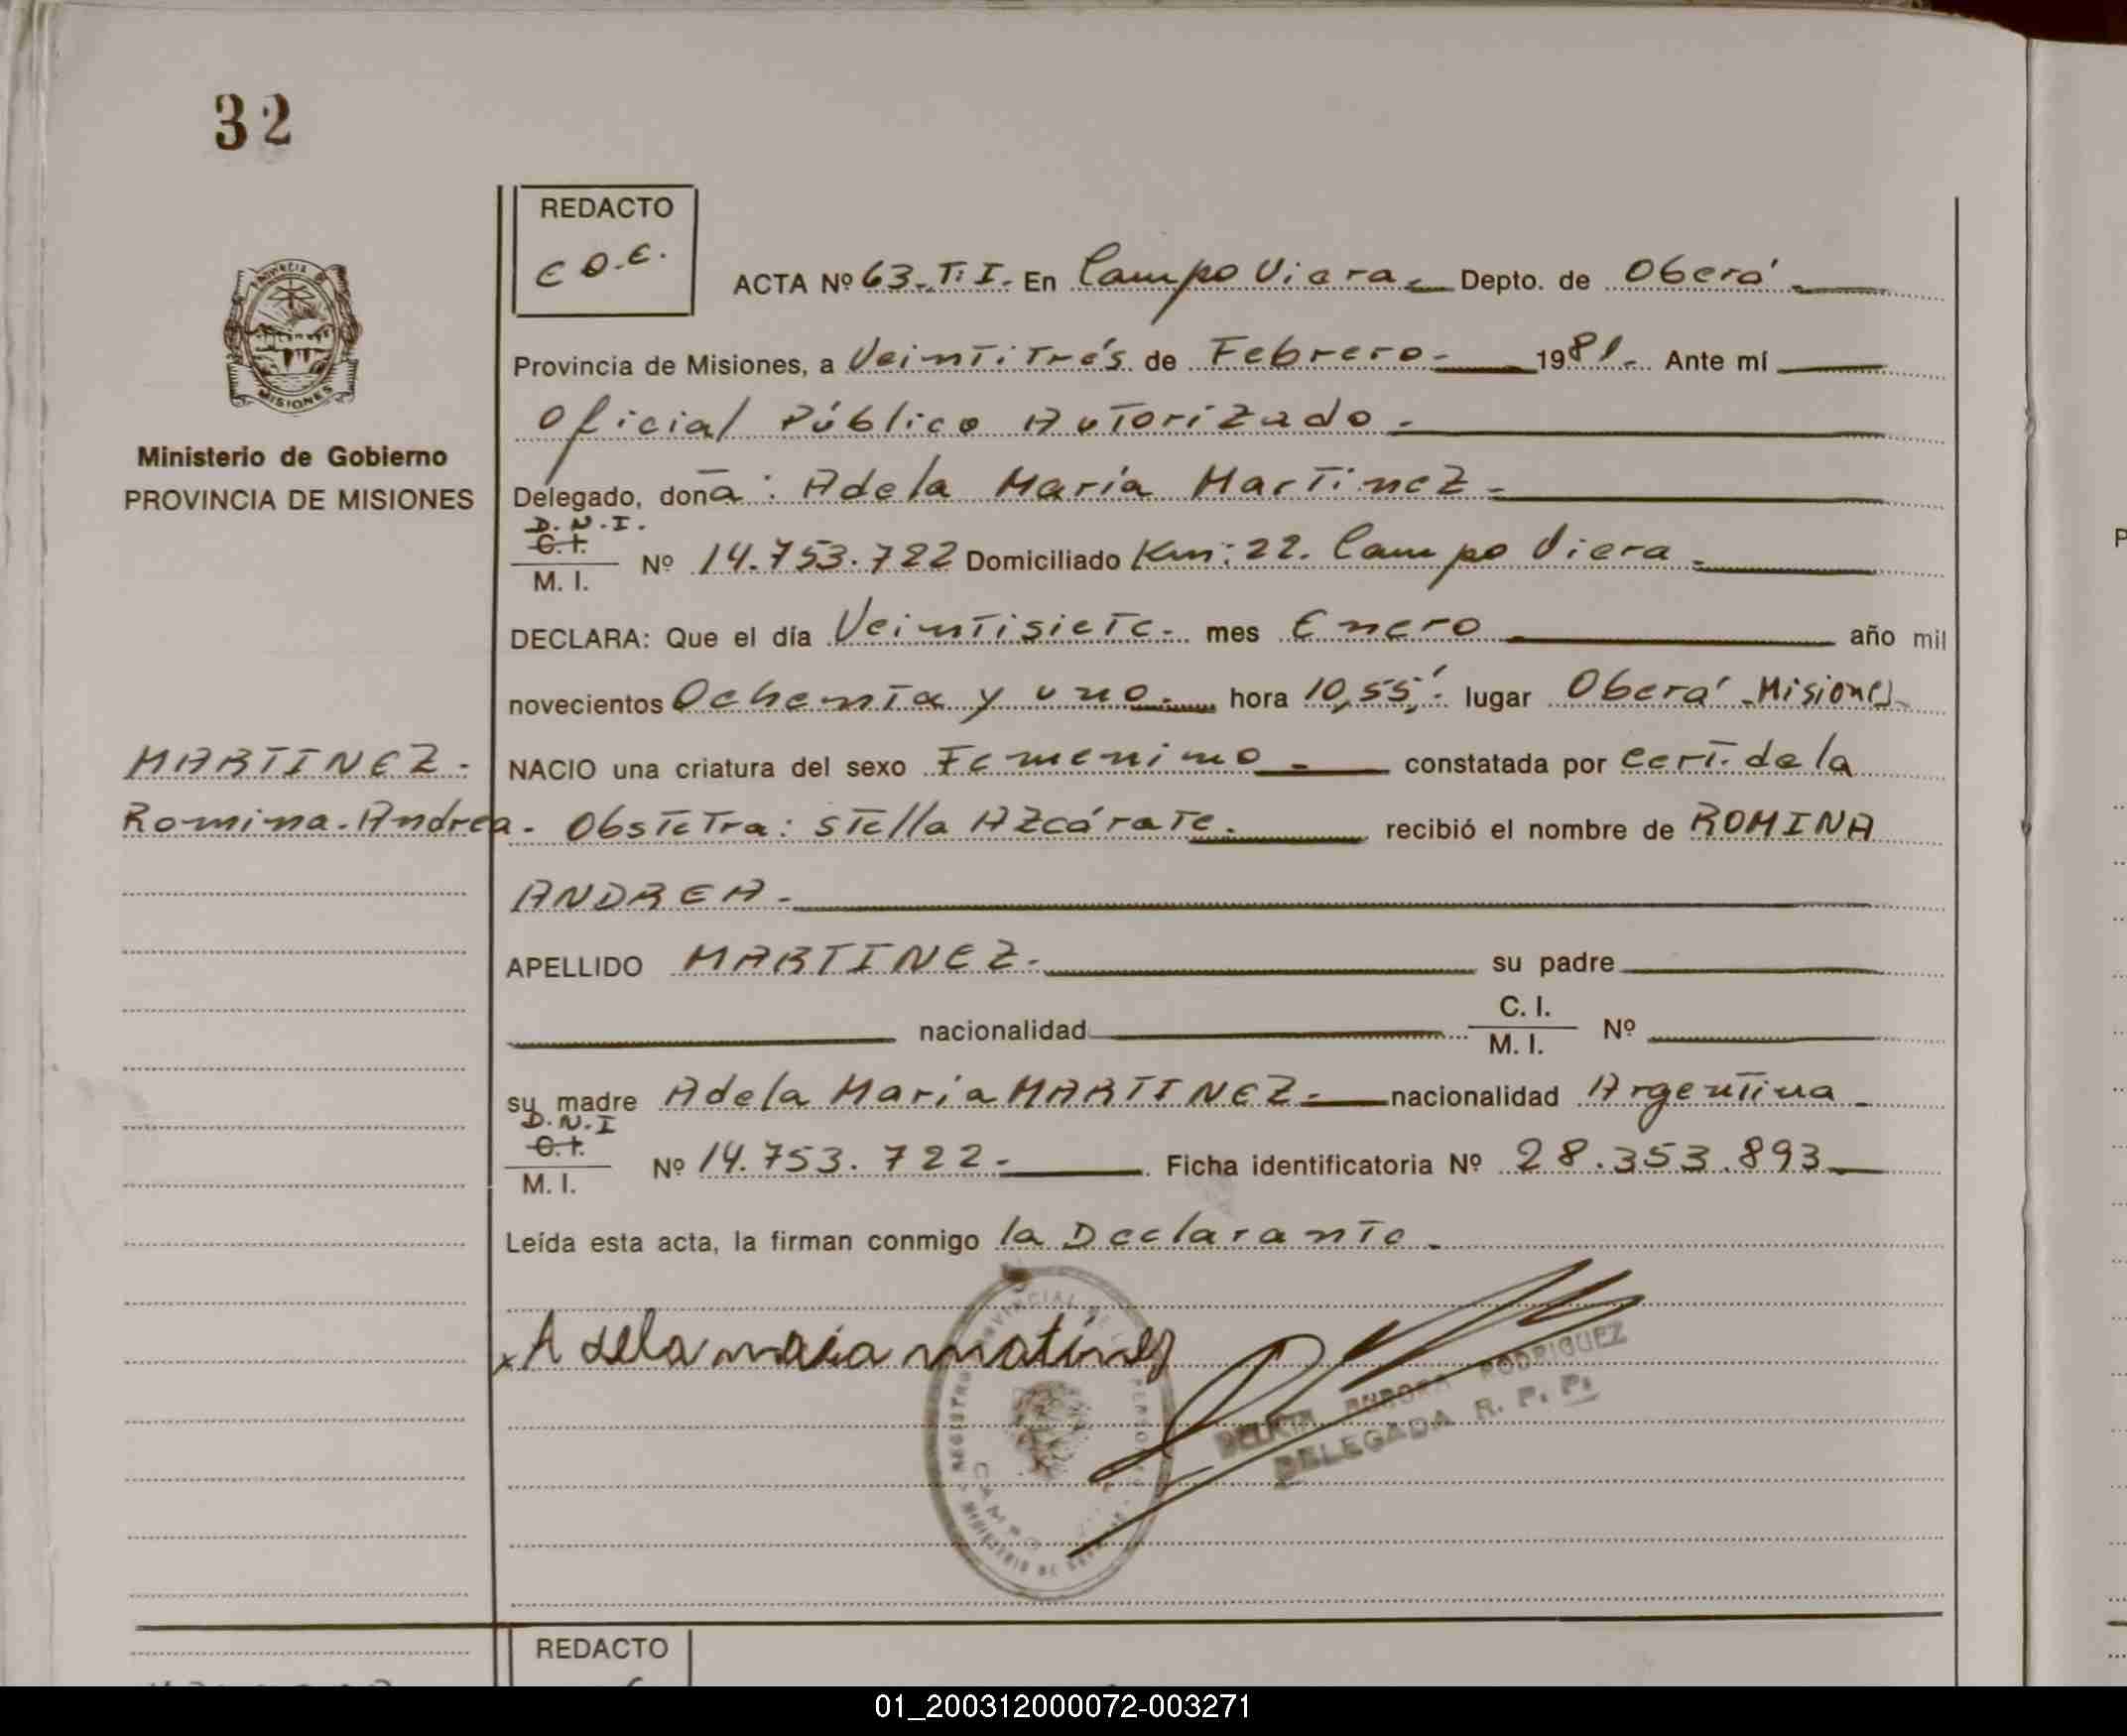 32
REDACTO
C O.E.
ACTA Nº 63-T:I- En Campo Viera - Depto. de Oberá -
Provincia de Misiones, a Veintitrés de Febrero - 1981 - Ante mí
Oficial Público Autorizado -
PROVINCIA DE MISIONES
Ministerio de Gobierno
PROVINCIA DE MISIONES
Delegado, doña : Adela María Martinez -
D.N.I.
C.I.
M. I.
Nº 14.753.722 Domiciliado Km: 22. Campo Viera -
DECLARA: Que el día Veintisiete - mes Enero año mil
novecientos Ochenta y uno - hora 10,55' lugar Oberá - Misiones
MARTINEZ -
NACIO una criatura del sexo Femenino - constatada por Cert. de la
Romina - Andrea -
Obstetra: Stella Azcárate - recibió el nombre de ROMINA
ANDREA -
APELLIDO MARTINEZ - su padre
nacionalidad C. I. M. I. Nº
su madre Adela María MARTINEZ - nacionalidad Argentina -
D.N.I
C.I.
M. I.
Nº 14.753.722 - Ficha identificatoria Nº 28.353.893
Leída esta acta, la firman conmigo la Declarante -
x Adela maria matinez
AURORA RODRIGUEZ
DELEGADA R. P. P.
REDACTO
01_200312000072-003271